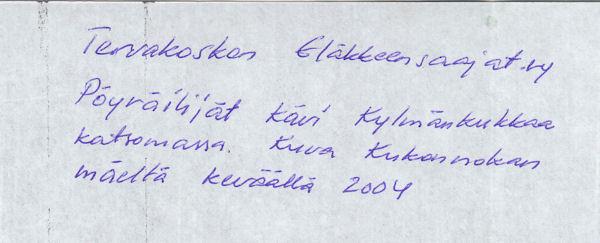 Tervakosken Eläkkeensaajat.ry
Pöyräilijät kävi Kylmänkukkaa
katsomassa. Kuva Kukonnokan
mäeltä keväällä 2004